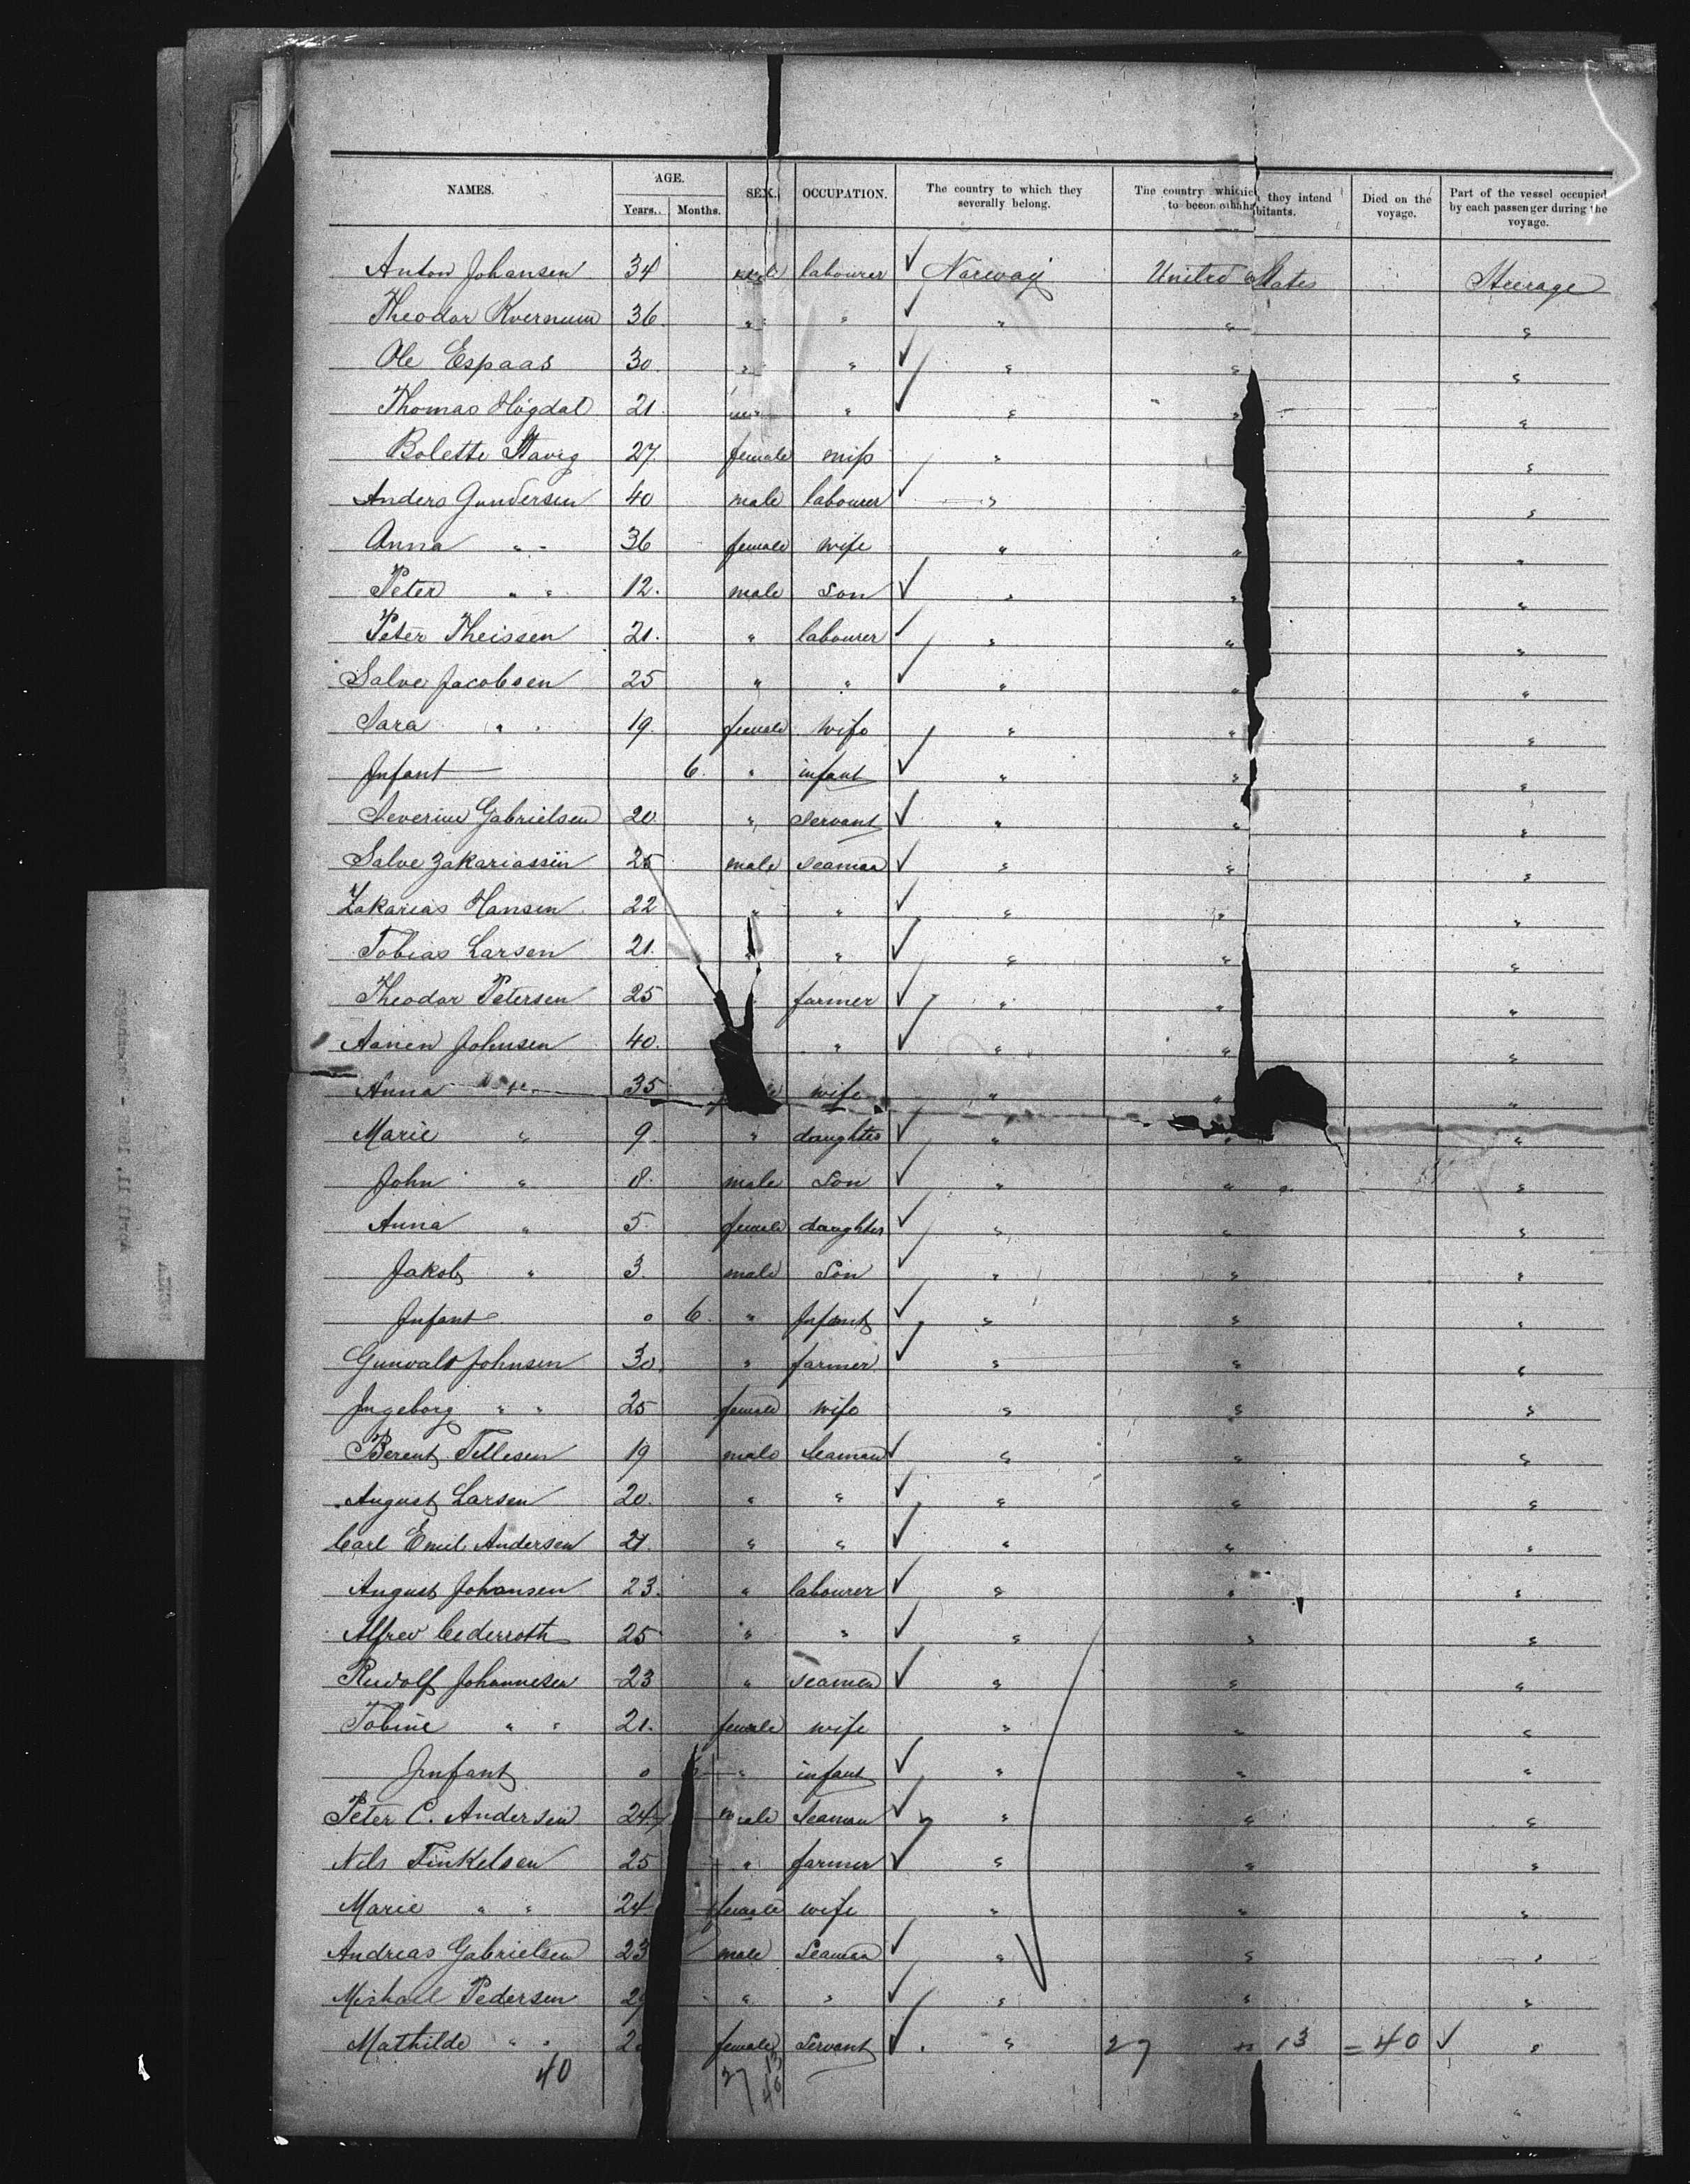 NAMES. AGE. SEX. OCCUPATION. The country to which they severally belong. The country which they intend to become inhabitants. Died on the voyage. Part of the vessel occupied by each passenger during the voyage.
Years. Months.
Anton Johansen 34 male labourer ✓ Norway United States Steerage
Theodor Kvernum 36 " " ✓ " " "
Ole Espaas 30 " " ✓ " " "
Thomas Högdal 21 " " ✓ " " "
Bolette Stavig 27 female miss " "
Anders Gundersen 40 male labourer ✓ " "
Anna " " 36 female wife " " "
Peter " " 12. male Son ✓ " " "
Peter Theissen 21. " labourer ✓ " " "
Salve Jacobsen 25 " " ✓ " " "
Sara " " 19. female wife " " "
Infant 6. " infant ✓ " " "
Severine Gabrielsen 20 " Servant ✓ " " "
Salve Zakariassen 25 male seaman ✓ " " "
Zakarias Hansen 22 " " ✓ " " "
Tobias Larsen 21. " " ✓ " " "
Theodor Petersen 25 " farmer ✓ " " "
Aanen Johnsen 40. " ✓ " " "
Anna " " 35 wife " " "
Marie " 9. " daughter ✓ " " "
John " 8. male Son ✓ " " "
Anna " 5. female daughter ✓ " " "
Jakob " 3. male Son ✓ " " "
Infant 0 6. " Infant ✓ " " "
Gunvald Johnsen 30. " farmer ✓ " " "
Ingeborg " " 25 female wife " " "
Berent Tellesen 19 male Seaman ✓ " " "
August Larsen 20. " " ✓ " " "
Carl Emil Andersen 21. " " ✓ " " "
August Johansen 23. " labourer ✓ " " "
Alfred Cederroth 25 " " ✓ " " "
Rudolf Johannesen 23 " seaman ✓ " " "
Tobine " " 21. female wife " " "
Infant 0 " infant ✓ " " "
Peter C. Andersen 24 male Seaman ✓ " " "
Nils Finkelsen 25 " farmer ✓ " " "
Marie " " 24 female wife " " "
Andreas Gabrielsen 23 male Seaman ✓ " " "
Mishael Pedersen " " ✓ " " "
Mathilde " " female Servant ✓ " 27 13 = 40 ✓ "
40 27 13 40